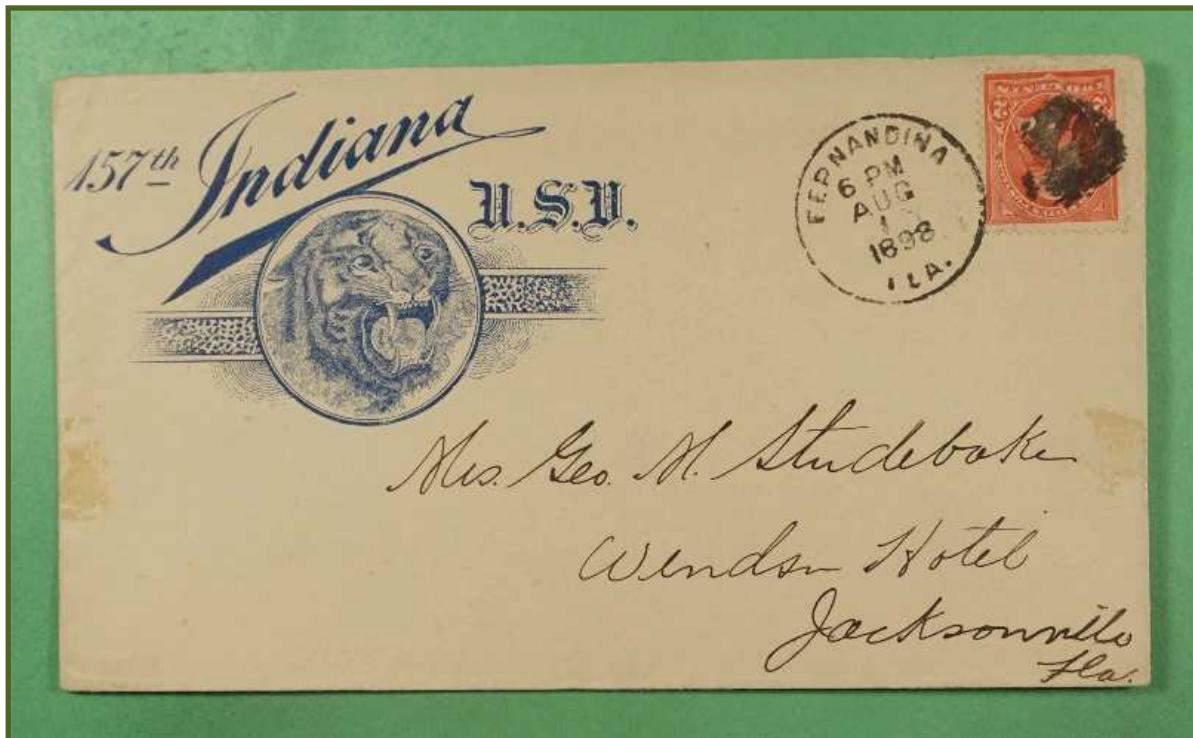 157th Indiana
U.S.V.
FERNANDINA
6 PM
AUG
1
1898
FLA.
Mrs. Geo. M. Studebaker
Windsor Hotel
Jacksonville
Fla.